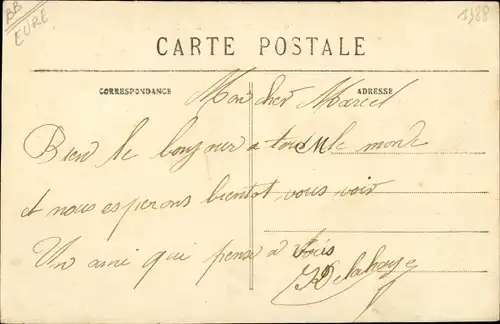 BB
EURE
1988
CARTE POSTALE
CORRESPONDANCE
ADRESSE
Mon cher Marcel
Bien le bonjour a tous le monde
M
et nous esperons bientot vous voir
Un ami qui pense a vous
Delahaye